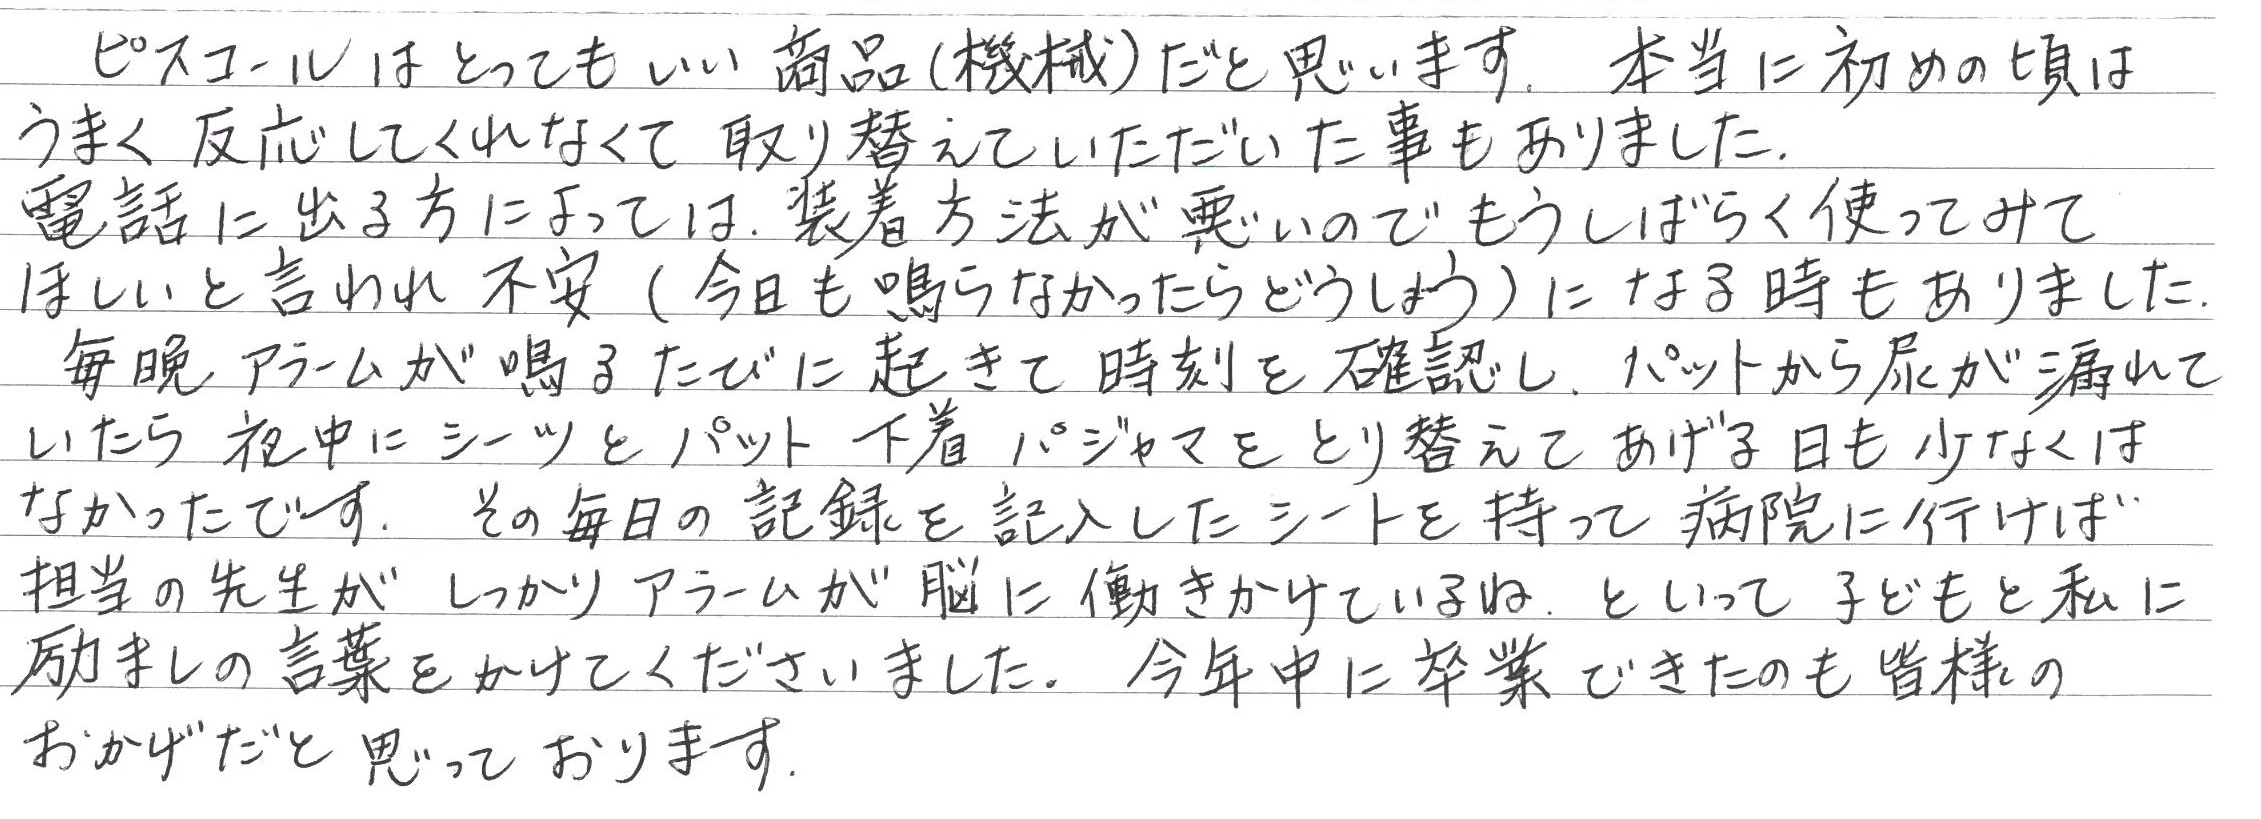 ピスコールはとってもいい商品(機械)だと思います. 本当に初めの頃は
うまく反応してくれなくて取り替えていただいた事もありました.
電話に出る方によっては. 装着方法が悪いのでもうしばらく使ってみて
ほしいと言われ不安(今日も鳴らなかったらどうしよう)になる時もありました.
毎晩アラームが鳴るたびに起きて時刻を確認し. パットから尿が漏れて
いたら夜中にシーツとパット下着パジャマをとり替えてあげる日も少なくは
なかったです. その毎日の記録を記入したシートを持って病院に行けば
担当の先生がしっかりアラームが脳に働きかけているね. といって子どもと私に
励ましの言葉をかけてくださいました. 今年中に卒業できたのも皆様の
おかげだと思っております.